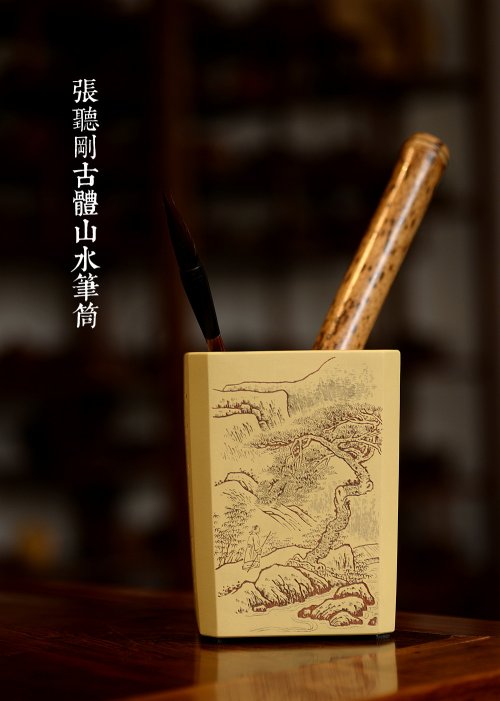 張聽剛古體山水筆筒